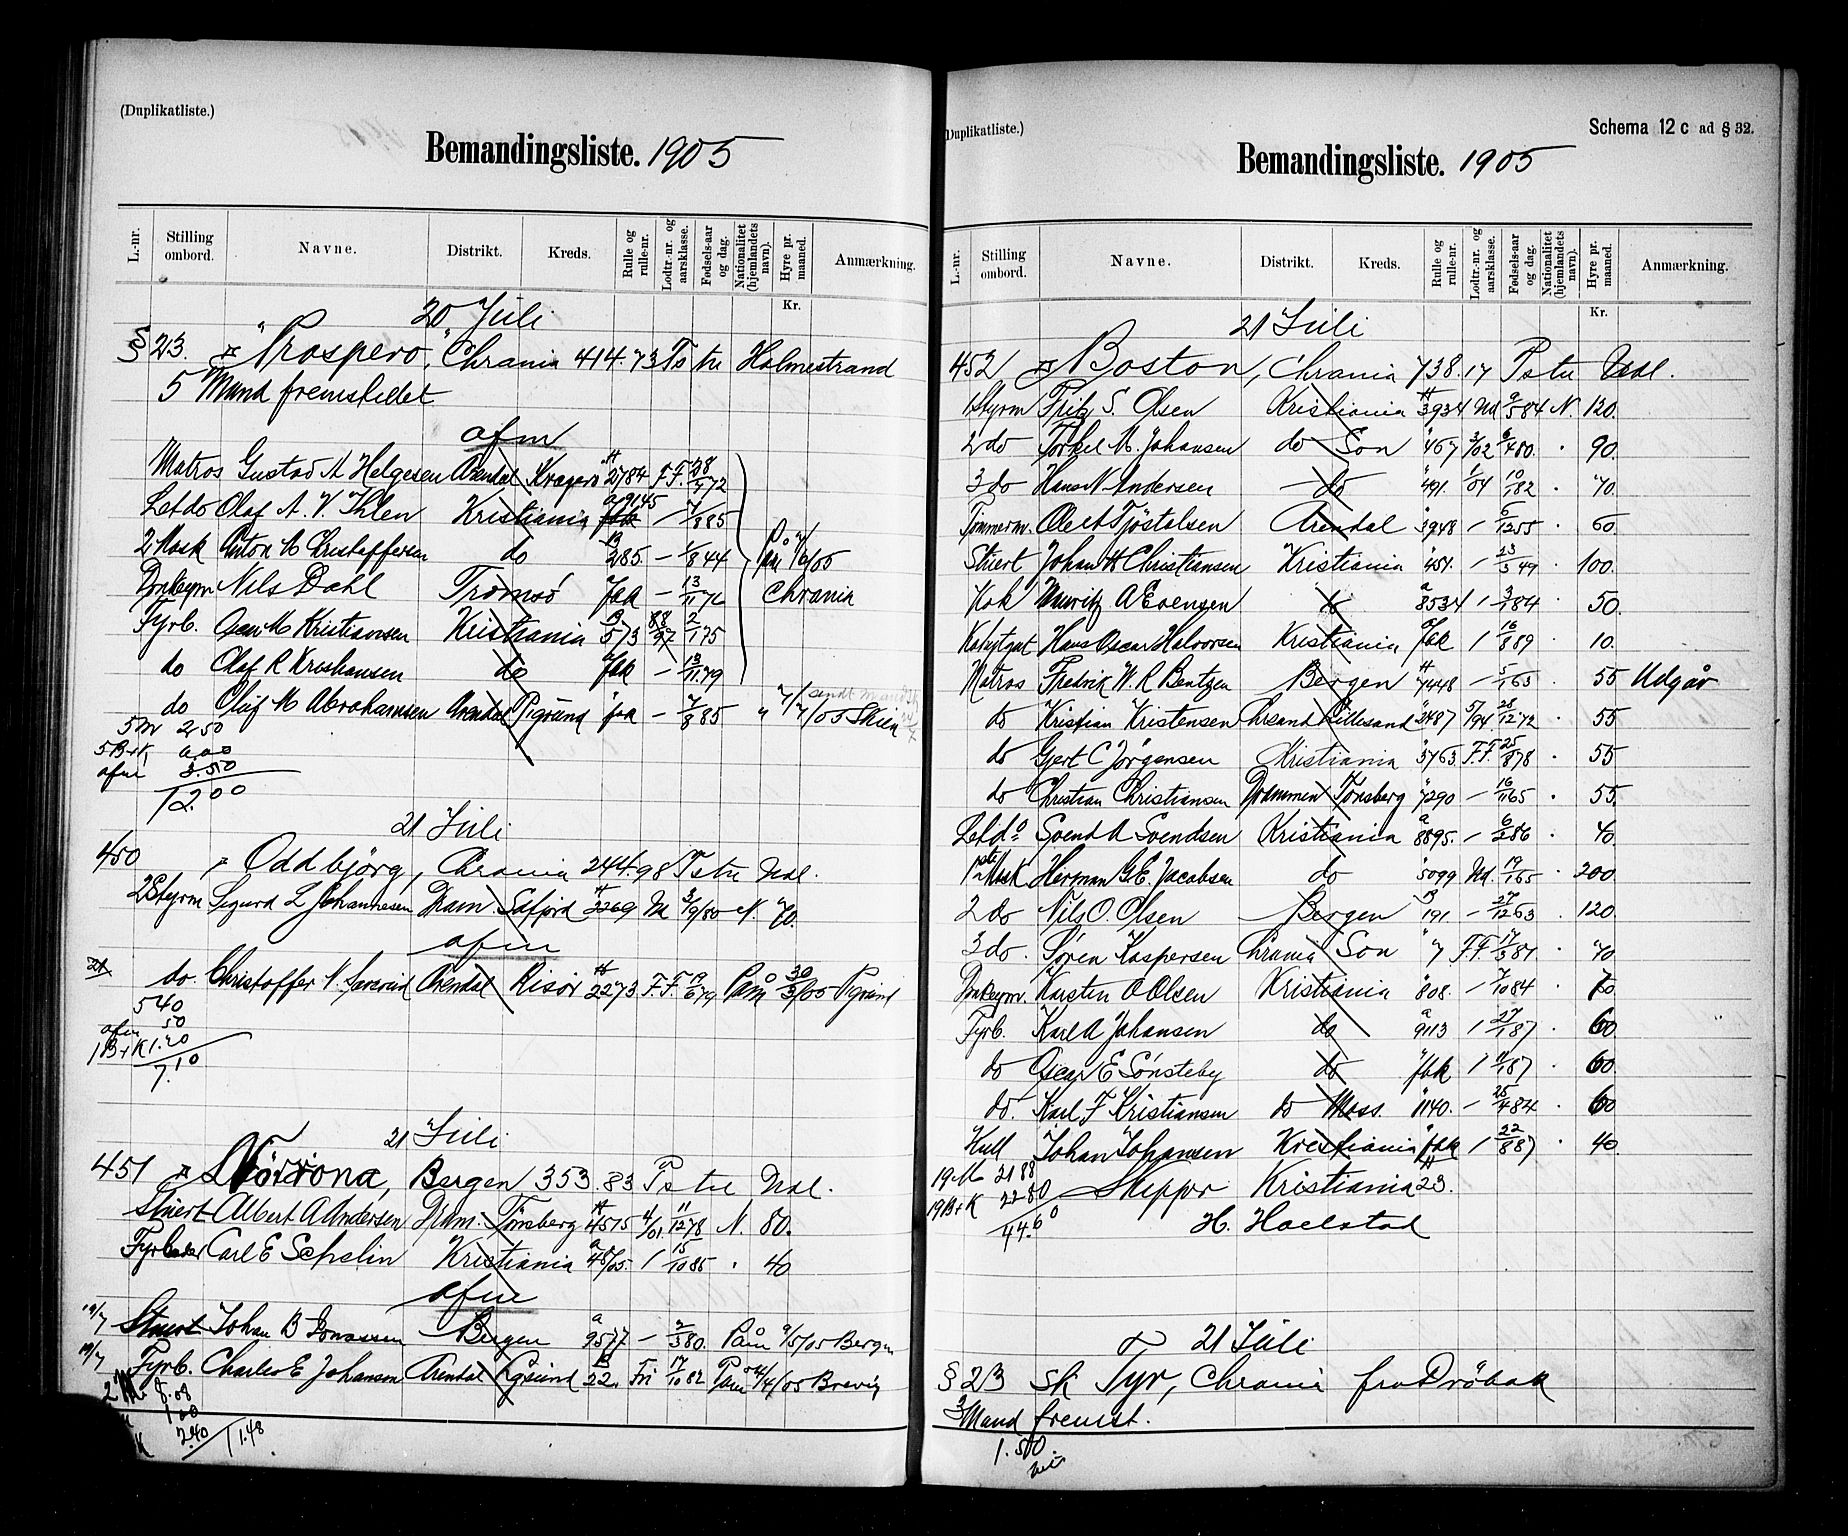 (Duplikatliste.)
Bemandingsliste. 1905
L.-nr. Stilling ombord. Navne. Distrikt. Kreds. Rulle og rulle-nr. Lodtr.-nr. og aarsklasse. Fødsels-aar og dag. Nationalitet (hjemlandets navn). Hyre pr. maaned. Anmærkning.
Kr.
20 Juli
§ 23. "Prospero", Chrania 414.73 Ts tr Holmestrand
5 Mand fremstillet
afm
Matros Gustav A Helgesen Arendal Kragerø 2784 F.F. 28/ 72
Letdo Olaf A. V. Ihlen Kristiania 9145 – 7/885
2 Mask Anton M Christoffersen do 285. – 1/844 /05
Donkeym Nils Dahl Tromsø fbk – 13/11 76 Chrania
Fyrb. Oscar M Kristiansen Kristiania 573 88/97 2/175
do Olaf R Kristiansen do fbk – 13/11 79
do Olaf M Abrahamsen Arendal Pgrund – 7/8 85 /05 Skien
5 M 2.50
5 B+K
afm 3.50
12.00
21 Juli
450 Oddbjörg, Chrania 244.98 Ts tr Udl.
2 Styrm Sigurd L Johannesen Dram. Säfjord 2269 M 3/9/80 N. 70.
afm
do. Christoffer N. Arendal Risör 2273 F.F. 19/679 Påm 30/3/05 Pgrund
540
afm 50
1 B+K 1.20
7.10
21 Juli
451 Nörrona, Bergen 353.83 Ts tr Udl.
Stuert Albert A Andersen Dram. Tönsberg 4515 4/01 11/12 78 N. 80.
Fyrböder Carl E Schelin Kristiania 48/05. / 15/10 85 . 40
afm
19/7 Stuert Johan B Jonassen Bergen 9577 – 2/380. Påm 9/5/05 Bergen
19/7 Fyrb. Charles E Johansen Arendal Pgrund 22. Fri 17/10 82 Påm /4/05 Brevig
2 M. 8.08
1.00
2.40
11.48
(Duplikatliste.)
Schema 12 c ad § 32.
Bemandingsliste. 1905
L.-nr. Stilling ombord. Navne. Distrikt. Kreds. Rulle og rulle-nr. Lodtr.-nr. og aarsklasse. Fødsels-aar og dag. Nationalitet (hjemlandets navn). Hyre pr. maaned. Anmærkning.
Kr.
21 Juli
452 Boston, Chrania 738.17 Ts tr Udl.
1 Styrm Fritz S. Olsen Kristiania 3934 Ud 9/584 N. 120.
2 do Torkel M. Johansen do Son " 467 3/02 6/480. . 90.
3 do Hans N Andersen – do " 491. 1/04 10/182 . 70.
Tømmerm. Ole A Tjöstolsen Arendal " 3948 – 6/12 55 . 60
Stuert Johan H Christiansen Kristiania " 451. / 23/549 . 100.
Kok Mauritz A Evensen do 8534 / 3/184 . 50.
Kahytgut Hans Oscar Halvorsen Kristiania fbk / 16/889 . 10.
Matros Fredrik W. R Bentzen Bergen 7448 – 5/165. . 55 Udgår
do Kristian Kristensen Chrsand Lillesand " 2487 5/94 25/12 72 . 55
do Gjert C Jörgensen Kristiania " 3763 F.F. 25/878 . 55
do Christian Christiansen Drammen Tönsberg " 7290 – 16/1165 . 55.
Letdo Svend A Svendsen Kristiania 8895. – 6/286 . 40.
1ste Mask Herman G.E. Jacobsen do " 5099 Ud. 19/165 . 200.
2 do Nils O. Olsen Bergen 191. – 27/12 63 . 120.
3 do. Sören Kaspersen Chrania Son " 7 F.F. 17/381 . 70
Donkeym. Karsten O Olsen Kristiania " 808. – 7/10 84 . 70.
Fyrb. Karl A Johansen do 9113 / 27/187 . 60.
do Oscar E Sönsteby do " fbk / 11/187 . 60
do. Karl F Kristiansen do Moss. " 1140. – 25/484 . 60
Kull Johan Johansen Kristiania " fbk / 22/887 . 40.
19 M 21 88
19 B+K 22 80
44.60
Skipper Kristiania 23.
H. Haelstad
21 Juli
§ 23 Sk Tyr, Chrania fra Dröbak
3 Mand fremst.
1.500.